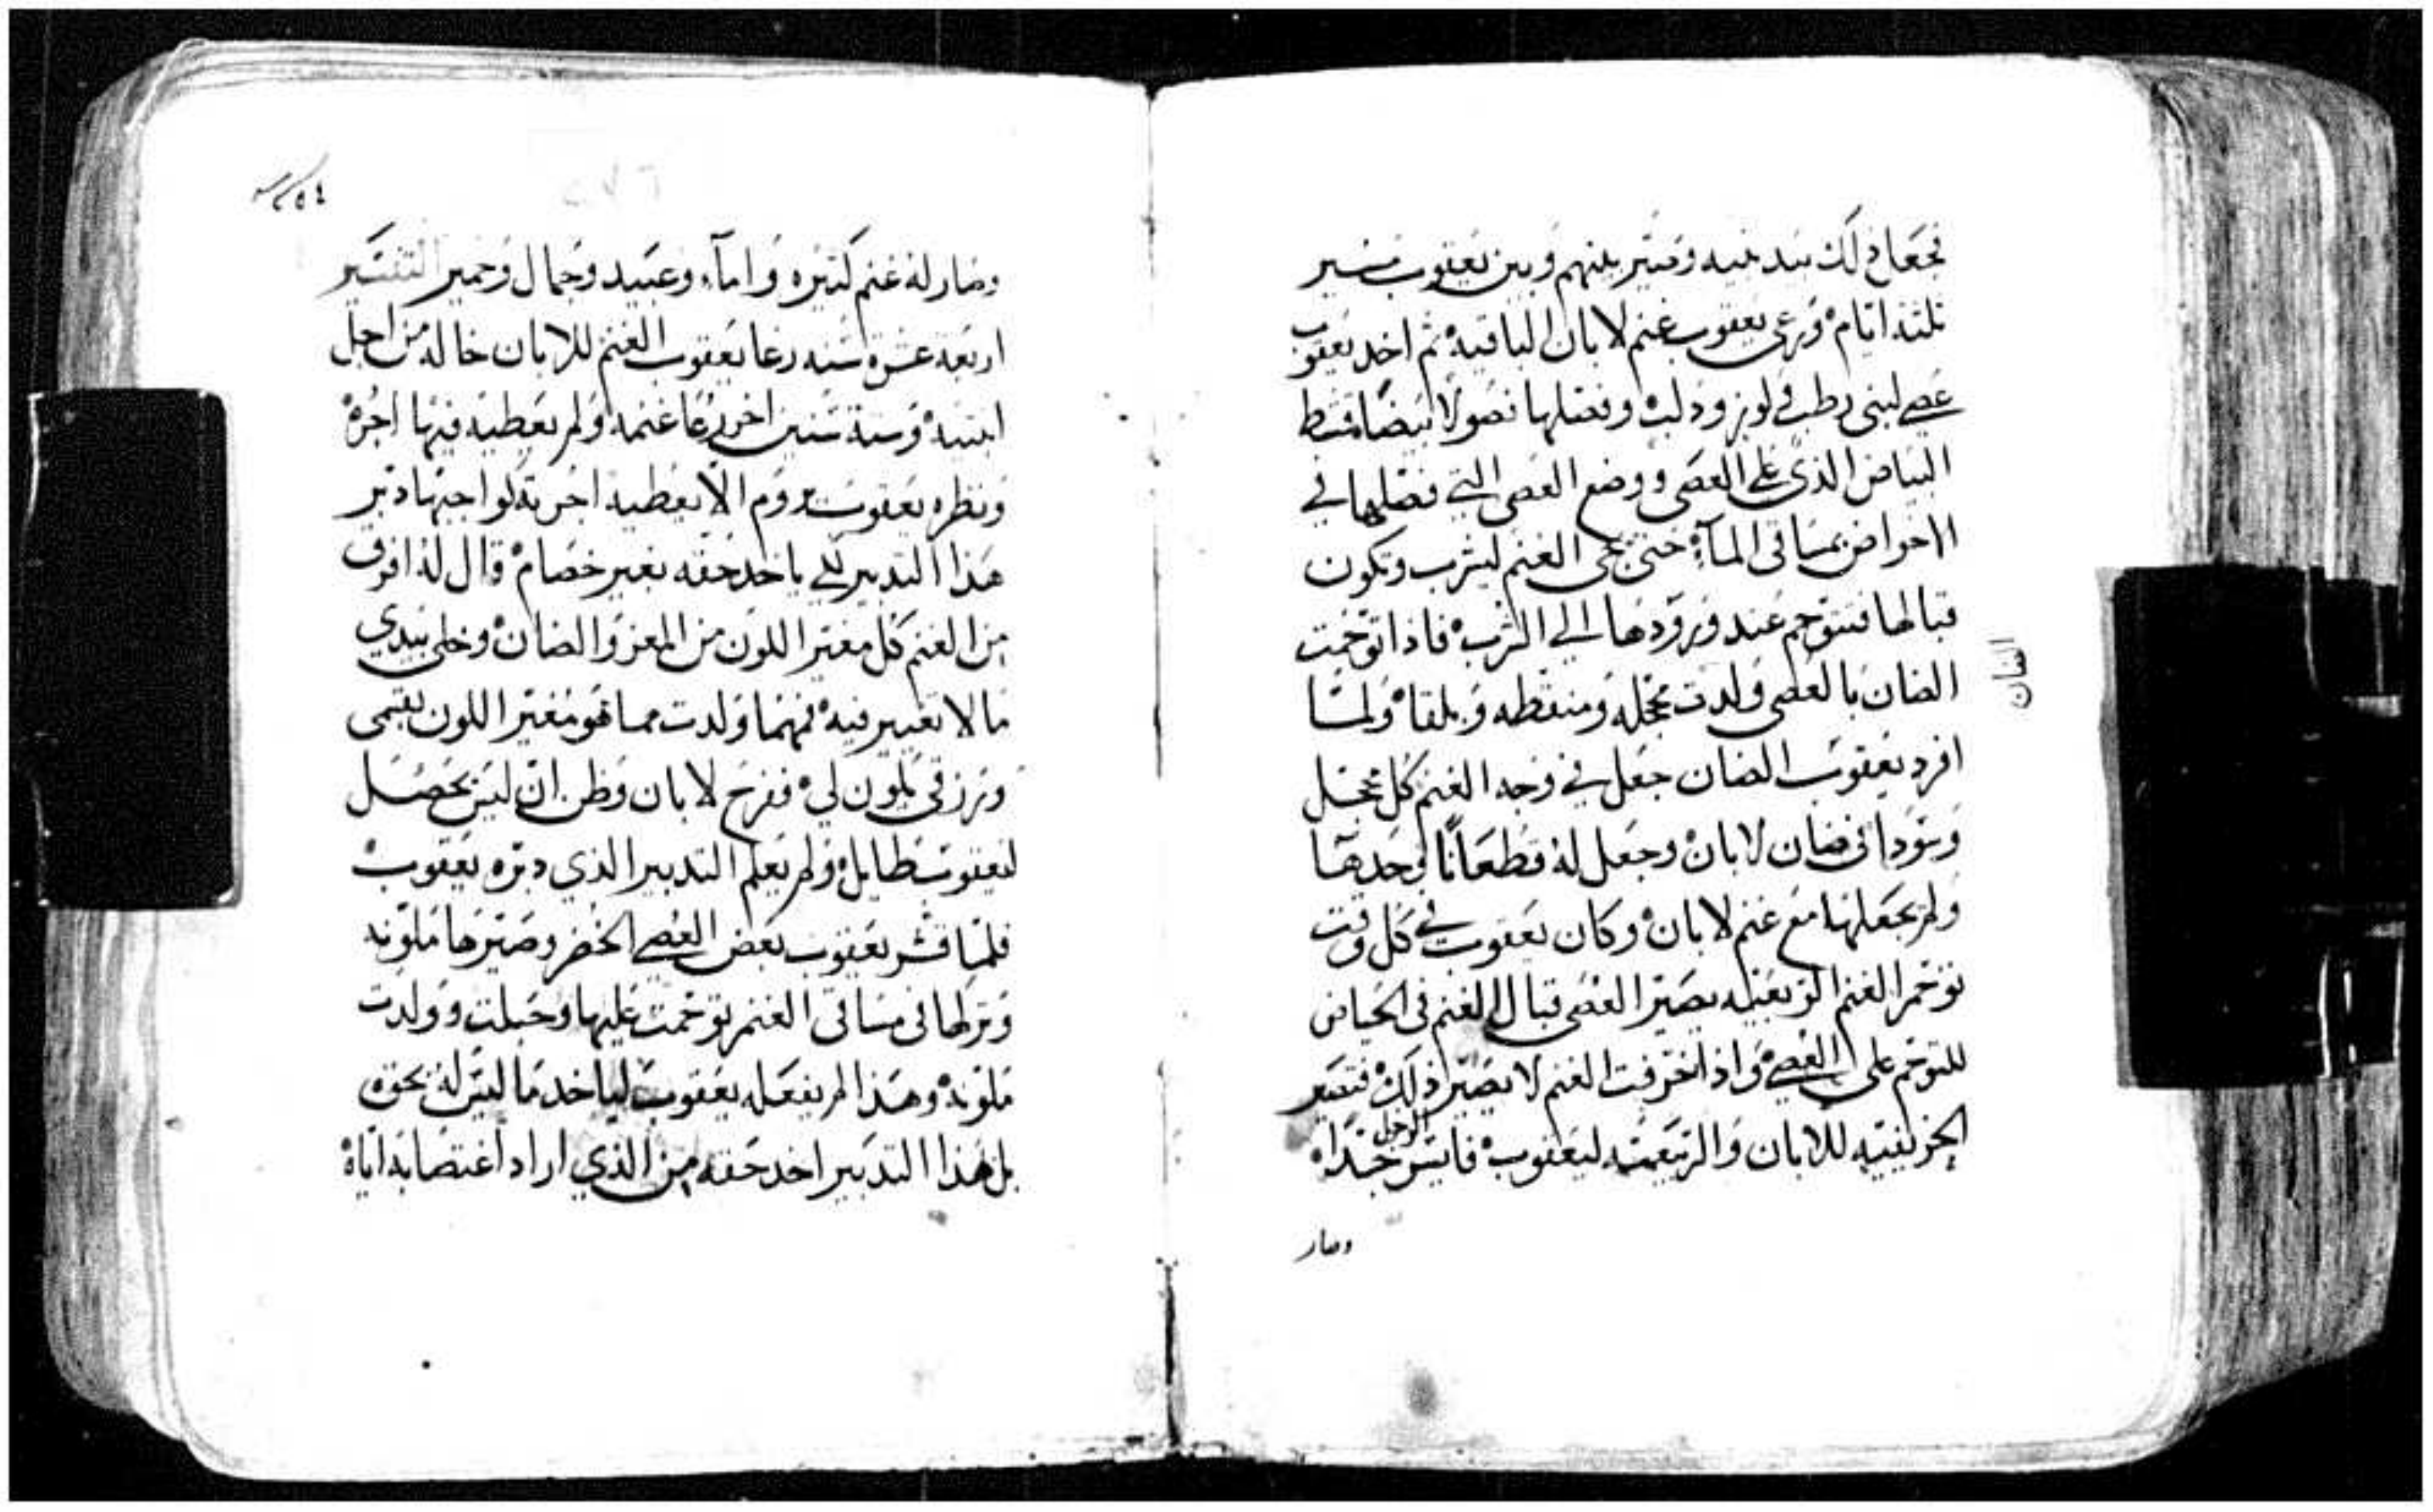 فجعل ذلك بيد بنيه وصير بينهم وبين يعقوب مسير
تلتة ايام ورعى يعقوب غنم لابان الباقية ثم اخد يعقوب
عصي لبنى رطب ولوز ودلب وفصلها فصولا بيضا مقشط
البياض الذي على العصى ووضع العصى التي فصلها في
الاحواض بمساقى المآء حتى تجى الغنم ليشرب وتكون
قبالها فتتوحم عند ورودها الى الشرب فاذا توحمت
الضان بالعصى ولدت محجله ومنقطه وبلقاه ولما
افرد يعقوب الضان جعل في وجه الغنم كل محجل
وسودا في ضان لابان وجعل له قطعانا لوحدها
ولم يجعلها مع غنم لابان وكان يعقوب في كل وقت
توحم الغنم الربعيه يصير العصى قبال الغنم في الحياض
للتوحم على العصي واذا خرفت الغنم لا يصير ذلك فتصير
الخريفيه للابان والربعيه ليعقوب فايسر الرجل جدا
وصار
وصار له غنم كتيره واماء وعبيد وجمال وحمير التفسير
اربعة عشرة سنه رعا يعقوب الغنم للابان خاله من اجل
ابنتيه وستة سنين اخر رعا غنمه ولم يعطيه فيها اجره
ونظره يعقوب يروم الا يعطيه اجرته لواجبها دبر
هذا التدبير لكي ياخد حقه بغير خصام قال له افرق
من الغنم كل مغير اللون من المعز والضان وخلي بيدي
ما لا تغيير فيه فمهما ولدت مما هو مغير اللون بقسمى
ورزقي يكون لي ففرح لابان وظن ان ليس يحصل
ليعقوب طايل ولم يعلم التدبير الذي دبره يعقوب
فلما قشر يعقوب بعض العصي الخضر وصيرها ملونه
وتركها في مساقى الغنم توحمت عليها وحبلت وولدت
ملونه وهذا لم يفعله يعقوب لياخد ما ليس له بحقه
بل هذا التدبير اخد حقه من الذي اراد اغتصابه اياه